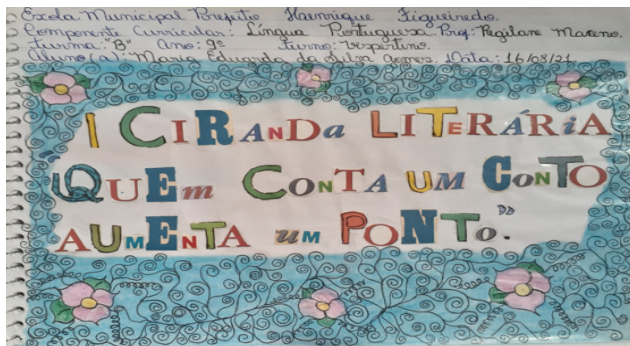 Escola Municipal Porejutio Haenrique Figueiredo.
Componente Curricular: Língua Portuguesa. Prof: Regilane Mareno.
Turma: "B" Ano: 9º Turno: Vespertino.
Aluno(a): Maria Eduarda da Silva Gomes. Data: 16/08/21
I CIRANDa LITERÁRiA
QUEm CONTA UM CoNTO
AUMENTA um PONTo."